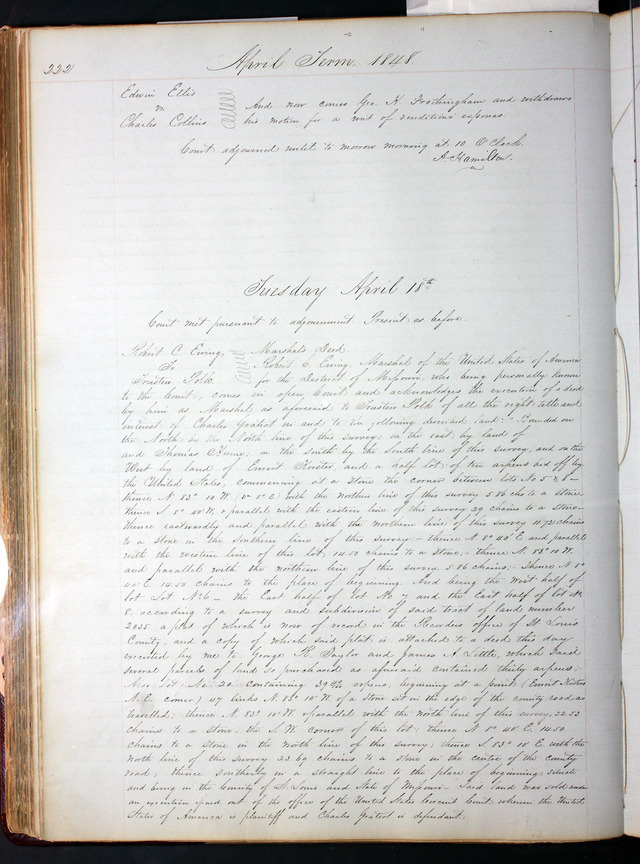 222
April Term 1848
Edwin Ellis
vs.
Charles Collins
And now comes Geo. K. Frothingham and withdraws
his motion for a writ of venditioni exponas
Court adjourned until to morrow morning at 10 O'Clock.
A. Hamilton.
Tuesday April 18th
Court met pursuant to adjournment Present as before
Robert C. Ewing,
To
Trusten Polk.
Marshals Deed
Robert C. Ewing, Marshal of the United States of America
for the District of Missouri, who being personally known
to the Court, comes in open Court and acknowledges the execution of a deed
by him as Marshal as aforesaid to Trusten Polk of all the right title and
interest of Charles Gratiot in and to the following described land: Bounded on
the North by the North line of this survey; on the east by land of
and Thomas; on the South by the South line of this survey, and on the
West by land of, and a half lot of ten arpens laid off by
the United States, commencing at a stone the corner between lots No 5 & 8 —
thence N. 83° 10' W. with the northern line of this survey 5.86 chs to a stone
thence S. 8° 40' W. & parallel with the eastern line of this survey 29 chains to a stone
thence eastwardly and parallel with the northern line of this survey 11.72 chains
to a stone in the southern line of this survey; — thence N. 8° 40' E. and parallel
with the western line of this lot, 14.50 chains to a stone; — thence N. 83° 10' W.
and parallel with the northern line of this survey, 5.86 chains; Thence N. 8°
40' E. 14.50 chains to the place of beginning. And being the West half of
lot Lot No 6 — the East half of lot No 7 and the East half of lot No
8. according to a survey and subdivision of said tract of land number
2035. a plat of which is now of record in the Recorders office of St Louis
County, and a copy of which said plat is attached to a deed this day
executed by me to George R. Taylor and James A. Little, which said
several parcels of land so purchased as aforesaid contained thirty arpens;
Also, lot No 20 containing arpens, beginning at a point
N.E. corner) 117 links N. 83° 10' W. of a stone set in the edge of the county road as
travelled; thence N. 83° 10' W. & parallel with the north line of this survey, 22.53
chains to a stone. the S.W. corner of this lot; thence N. 8° 40' E. 14.50
chains to a stone in the North line of this survey; thence S. 83° 10' E. with the
north line of this survey 22.69 chains to a stone in the centre of the county
road; thence southerly in a straight line to the place of beginning; situate
and being in the County of St Louis and State of Missouri — Said land was sold under
an execution issued out of the office of the United States Circuit Court, wherein the United
States of America is plaintiff and Charles Gratiot is defendant.